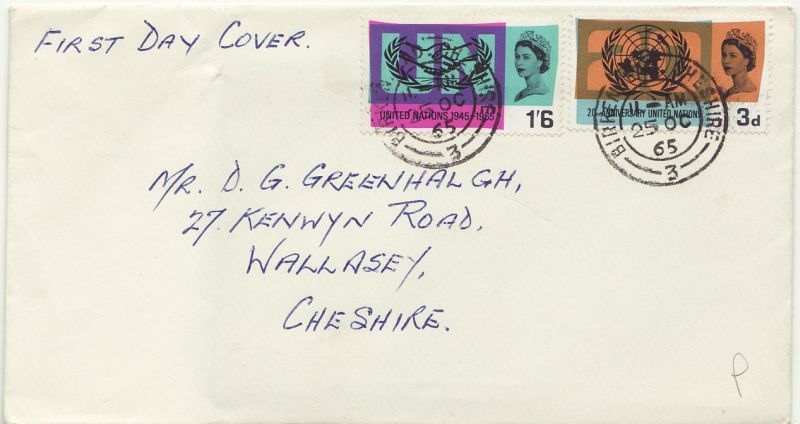 FIRST DAY COVER.
UNITED NATIONS 1945-1965
1'6
BIRKENHEAD CHESHIRE
11-AM
25 OC
65
3
20TH ANNIVERSARY UNITED NATIONS
3d
BIRKENHEAD CHESHIRE
11-AM
25 OC
65
3
MR. D. G. GREENHALGH,
27, KENWYN ROAD,
WALLASEY,
CHESHIRE.
P